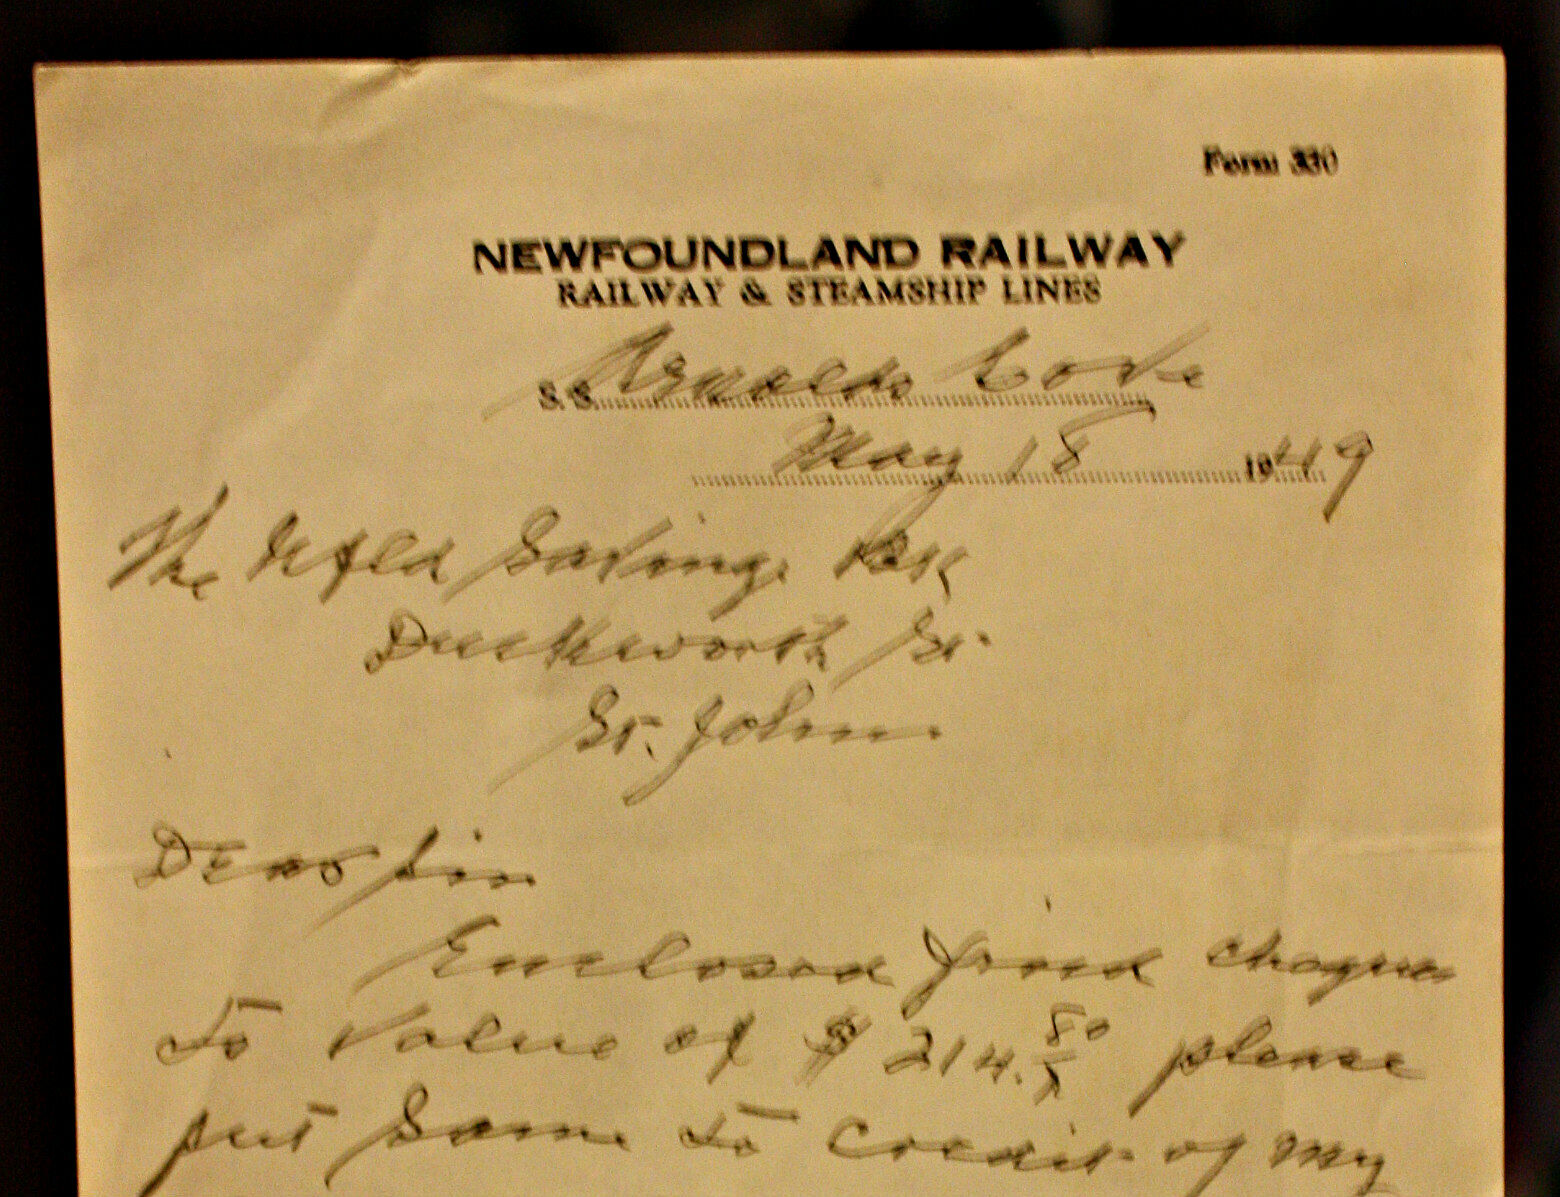 Form 330
NEWFOUNDLAND RAILWAY
RAILWAY & STEAMSHIP LINES
S. S. Arnolds Cove
May 18 1949
The Nfld Savings Bk
Duckworth St.
St. Johns
Dear Sir
Enclosed find cheques
to value of $ 214.80/x please
put same to credit of my